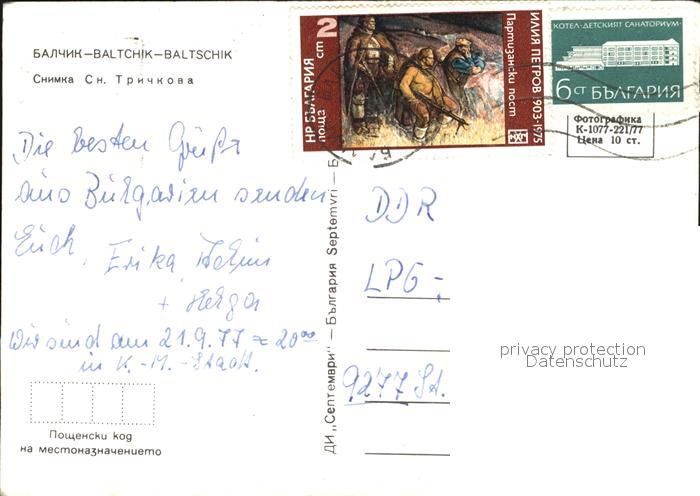 БАЛЧИК—BALTCHIK—BALTSCHIK
Снимка Сн. Тричкова
Die besten Grüße
aus Bulgarien senden
Euch, Erika,
+ Helga
Wir sind am 21.9.77 ≈ 20⁰⁰
in K.-M.-Stadt.
Пощенски код
на местоназначението
ДИ „Септември" — България Septemvri — Б
НР БЪЛГАРИЯ
поща
2 СТ
ИЛИЯ ПЕТРОВ 1903-1975
Партизански пост
КОТЕЛ-ДЕТСКИЯТ САНАТОРИУМ
6 СТ БЪЛГАРИЯ
Фотографика
К-1077-221/77
Цена 10 ст.
DDR
LPG-,
9277 St.
privacy protection
Datenschutz